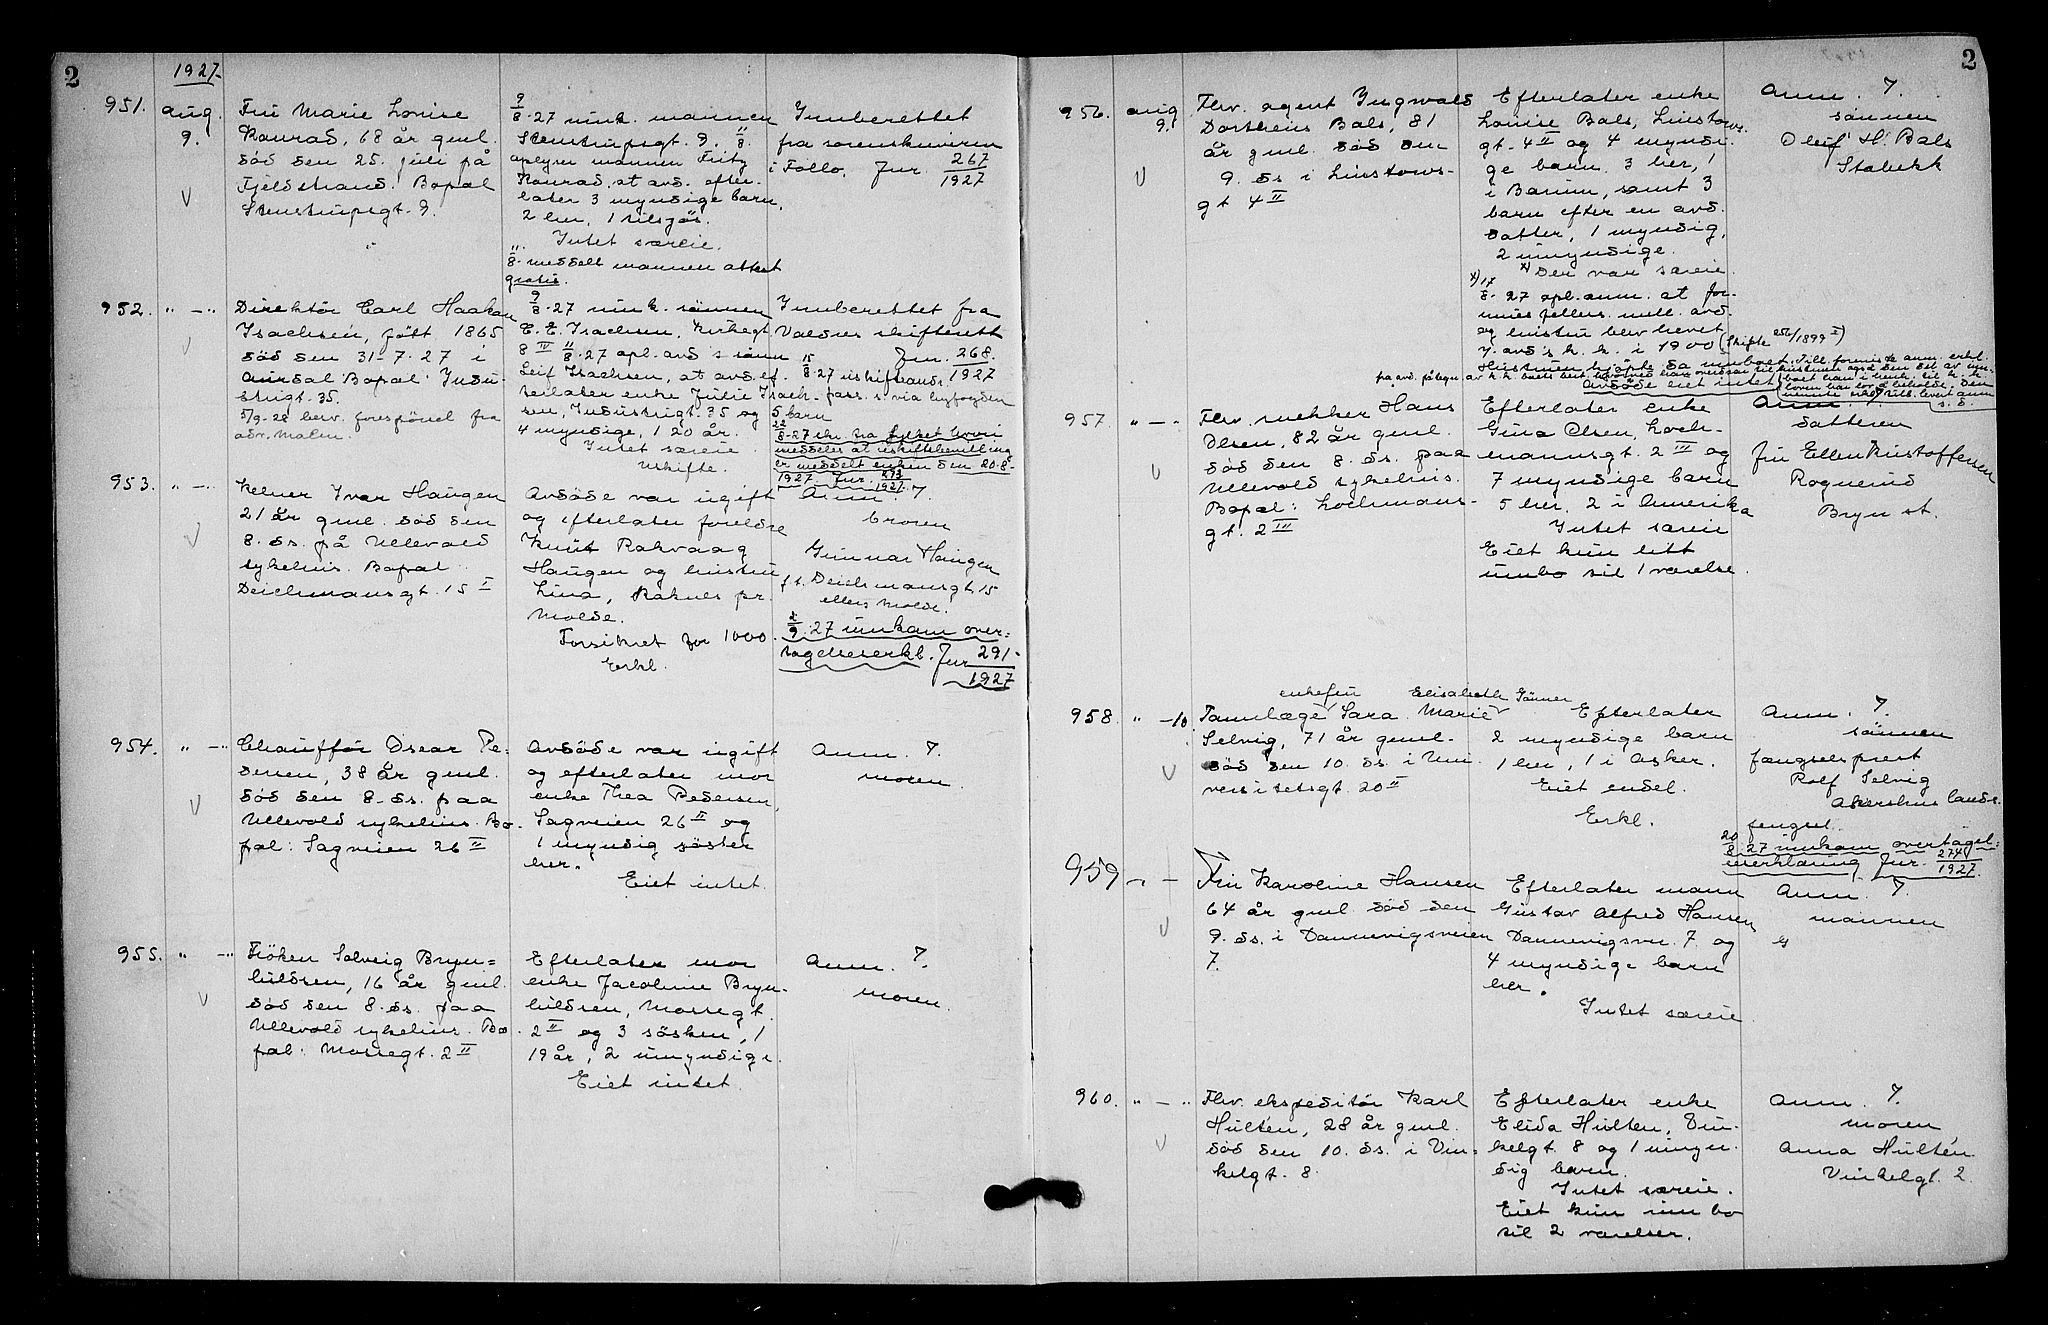 2
1927.
951. aug. 9.
Fru Marie Lovise
Konrad, 68 år gml.
död den 25. juli på
Fjeldstrand. Bopæl
Stenstrupsgt. 9.
9/8-27 innk. mannen
Stenstrupsgt. 9. 11/8.
oplyser mannen Fritz
Konrad, at avd. efter-
later 3 myndige barn,
2 her, 1 tilsjøs.
Intet særeie.
11/8. meddelt mannen attest
gratis.
Innberettet
fra sorenskriveren
i Follo. Jnr. 267/1927
952. " — "
Direktör Carl Haakon
Isachsen, född 1865
död den 31-7-27 i
Aurdal. Bopæl: Indu-
strigt. 35.
5/9-28 besv. forespörsel fra
adv. Malm.
9/8-27 innk. sönnen
C. E. Isachsen, Kirkegt.
8 IV 11/8-27 opl. avd's sönn
Leif Isachsen, at avd. ef-
terlater enke Julie Isach-
sen, Industrigt. 35 og 5 barn
4 myndige, 1 20 år.
Intet særeie.
Uskifte.
Innberettet fra
Valdres skifterett
Jnr. 268/1927
15/8-27 uskifteands.
pass. s. via byfogden
22/8-27 skr. fra fylket hvori
meddeles at uskiftebevilling
er meddelt enken den 20-8-
1927 Jnr. 293/1927.
953. " — "
Kelner Ivar Haugen
21 år gml. död den
8. ds. på Ullevold
sykehus. Bopæl
Deichmansgt. 15 I
Avdöde var ugift
og efterlater foreldre
Knut Rakvaag
Haugen og hustru
Lina, Raknes pr.
Molde.
Forsikret for 1000.
Erkl.
Anm. ?.
broren
Gunnar Haugen
f.t. Deichmansgt. 15
ellers Molde.
2/9-27 innkom over-
tagelseserkl. Jnr 291/1927
954. " — "
Chaufför Oscar Pe-
dersen, 38 år gml.
död den 8. ds. paa
Ullevold sykehus. Bo-
pæl: Sagveien 26 II
Avdöde var ugift
og efterlater mor
enke Thea Pedersen,
Sagveien 26 II og
1 myndig söster
her.
Eiet intet.
Anm. ?.
moren.
955. " — "
Fröken Solveig Bryn-
hildsen, 16 år gml.
död den 8. ds. paa
Ullevold sykehus. Bo-
pæl: Mossegt. 2 II
Efterlater mor
enke Jacobine Bryn-
hildsen, Mossegt.
2 II og 3 sösken, 1
19 år, 2 umyndige.
Eiet intet.
Anm. ?.
moren.
2
956. aug 9.
Fhv. agent Ingwald
Dortheus Bals, 81
år gml. död den
9. ds i Linstows-
gt 4 II
Efterlater enke
Louise Bals, Linstows-
gt. 4 II og 4 myndi-
ge barn. 3 her, 1
i Bærum, samt 3
barn efter en avd.
datter, 1 myndig,
2 umyndige.
x) Der var særeie.
x) 17/8-27 opl. anm. at for-
mues fellesk. mell. avd.
og hustru blev hevet
v. avd's k. k. i 1900 (Skifte 256/1899 I)
Avdöde eiet intet
Anm. ?.
sönnen
Oleif H. Bals
Stabekk
957. " — "
Fhv. snekker Hans
Olsen, 82 år gml.
död den 8. ds. paa
Ullevold sykehus.
Bopæl: Lochmans-
gt. 2 III
Efterlater enke
Gina Olsen, Loch-
mannsgt. 2 III og
7 myndige barn
5 her, 2 i Amerika
Intet særeie
Eiet kun litt
innbo til 1 værelse.
Anm. ?.
datteren
Fru Ellen Kristoffersen
Rognerud
Bryn st.
958. " — 10.
enkefru Elisabeth Sönner
Tannlæge Sara Marie
Selvig, 71 år gml.
död den 10. ds. i Uni-
versitetsgt. 20 II
Efterlater
2 myndige barn
1 her, 1 i Asker.
Eiet endel.
Erkl.
Anm. ?.
sönnen
fængselsprest
Rolf Selvig
Akershus lands-
fengsel.
20/8-27 innkom overtagel-
seserklæring Jnr. 274/1927.
959 " —
Fru Karoline Hansen
64 år gml död den
9. ds. i Dannevigsveien
7.
Efterlater mann
Gustav Alfred Hansen,
Dannevigsvn. 7 og
4 myndige barn
her.
Intet særeie
Anm. ?.
mannen
960. " — "
Fhv. ekspeditör Karl
Hultén, 28 år gml.
död den 10. ds. i Vin-
kelgt. 8.
Efterlater enke
Elida Hulten, Vin-
kelgt. 8 og 1 umyn-
dig barn.
Intet særeie.
Eiet kun innbo
til 2 værelser.
Anm. ?.
moren
Anna Hultén
Vinkelgt. 2